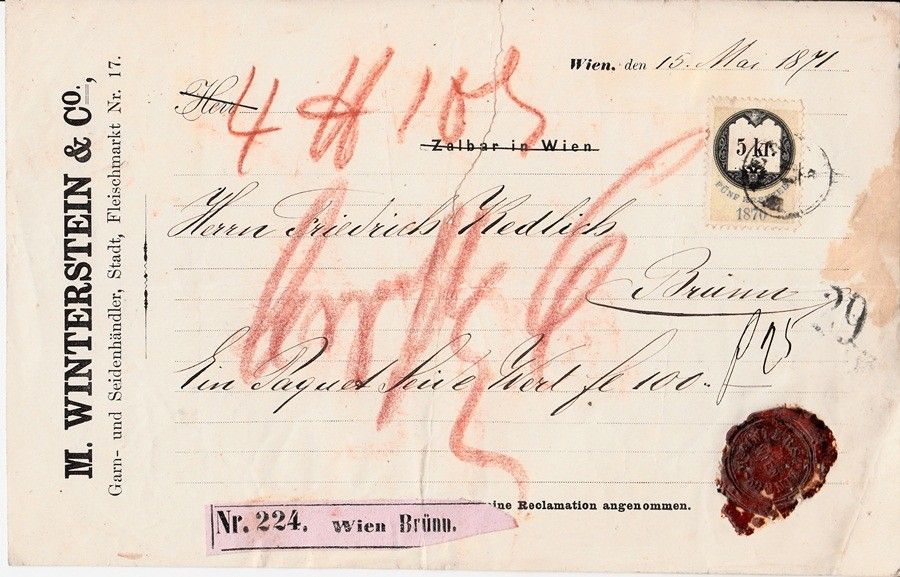 M. WINTERSTEIN & Co.,
Garn- und Seidenhändler, Stadt, Fleischmarkt Nr. 17.
Wien, den 15. Mai 1871
Herr
4 ℔ 10
Zalbar in Wien
5 kr.
FÜNF KREUZER
1870
Herrn Friedrich Redlich
Brünn
25
29
Ein Paquet Seide Wert fl 100
ine Reclamation angenommen.
Nr. 224. Wien Brünn.